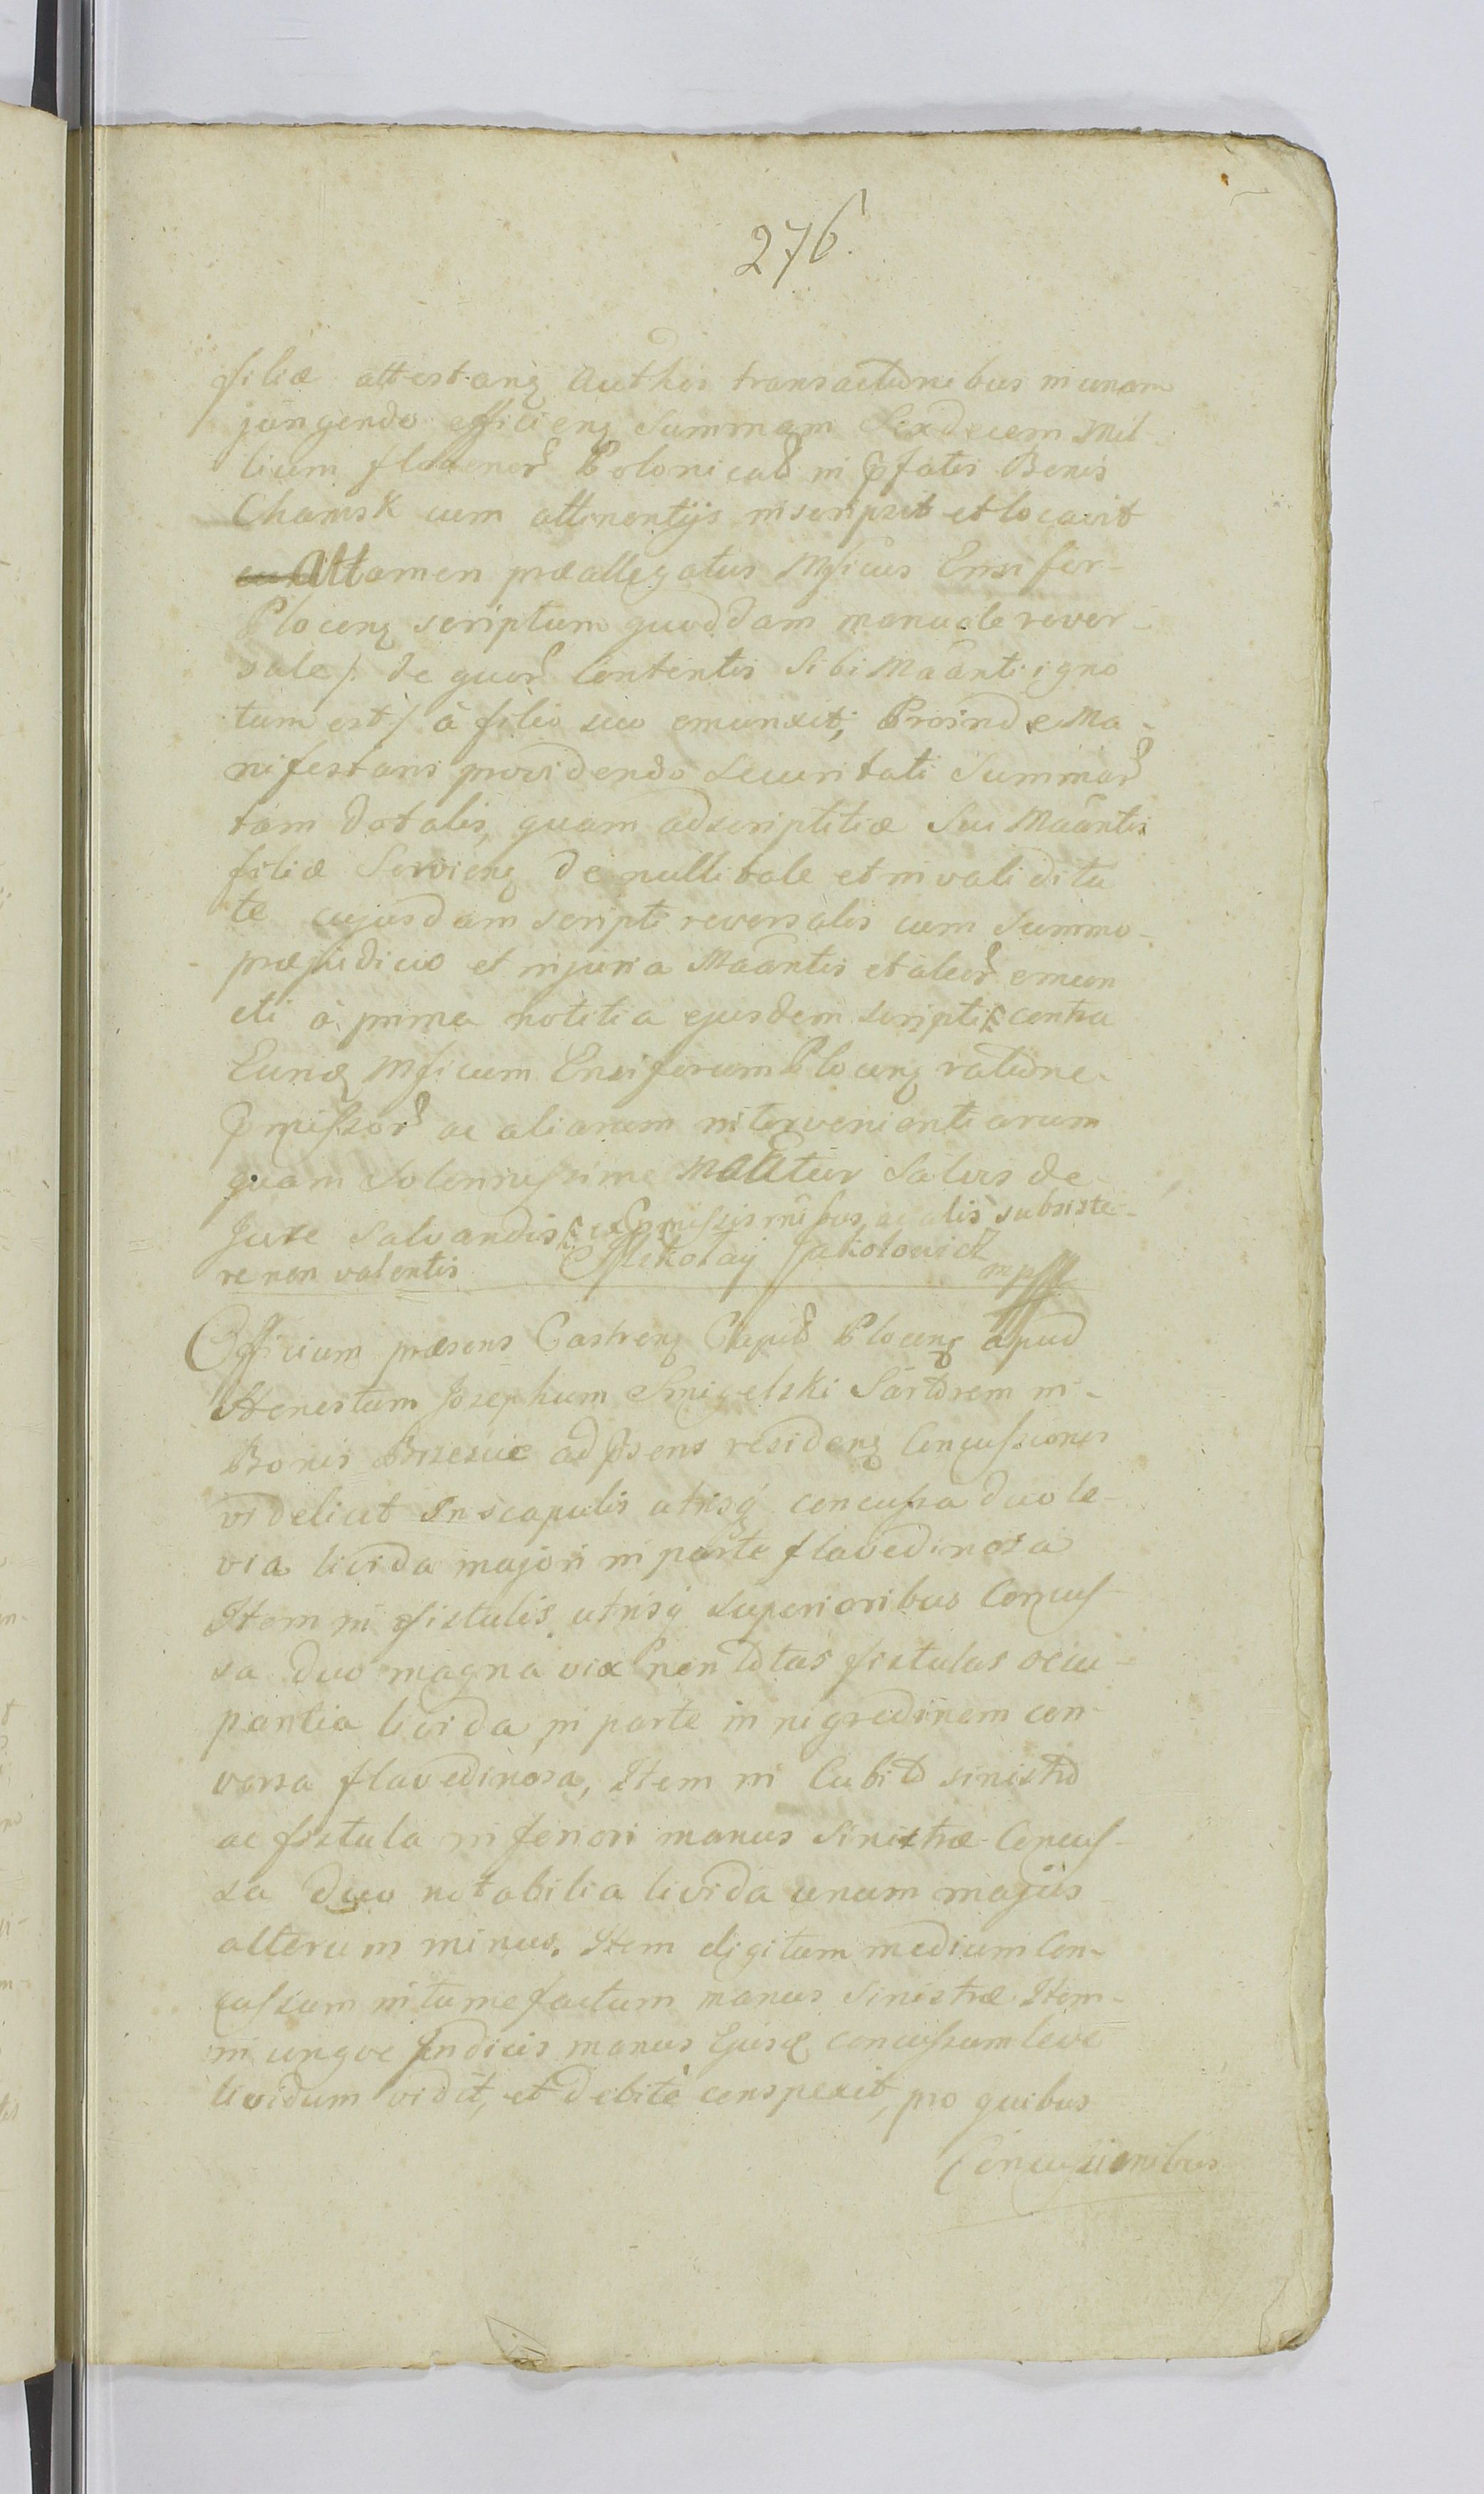 276.
filiæ attestanę Authis transactionibus in unam
jungendo efficienę Summam Sexdecem Mil-
lium florenor Polonical in pfatis Bonis
Chamsk cum attinentijs inscripsit et locavit
Attamen præallegatus Mficus Ensifer
Plocenę scriptum quoddam manuale rever-
sale /: de quor Contentis Sibi Maanti igno
tum est / à filio suo emunxit; Proinde Ma-
nifestans providendo Securitati Summar
tam dotalis, quam adscriptitiæ Suæ Maantis
filiæ Servienę de nullitate et invalidita
te cujusdam scripti reversalis cum Summo
præjudicio et injuria Maantis et alior emun
cti à prima notitia ejusdem scripti contra
Eunđ Mficum Ensiferum Plocenę ratione
pmissor ac aliarum intervenientiarum
quam Solennissime Maatur Salvis de
Jure Salvandis ex pmissis mibus, ac aliis subsiste-
re non valentis Mikołay Jakotowicz mpp
Officium præsens Castrenę Capitl Plocenę apud
Honestum Josephum Smigelski Sartorem in
Bonis Brzescie ad psens residenę Concussiones
videlicet In scapulis utrisq concussa duo le-
via livida majori in parte flavedinosa
Item in fistulis utrisq superioribus Concus-
sa duo magna vix non totas fistulas occu-
pantia livida in parte in nigredinem con-
versa flavedinosa, Item in Cubito sinistro
ac fistula inferiori manus Sinistræ Concus-
sa duo notabilia livida unum majus
alterum minus. Item digitum medium Con-
cussum intumefactum manus Sinistræ Item
in ungve Indicis manus Ejusđ concussum leve
lividum vidit, et debitè conspexit, pro quibus
Concussionibus